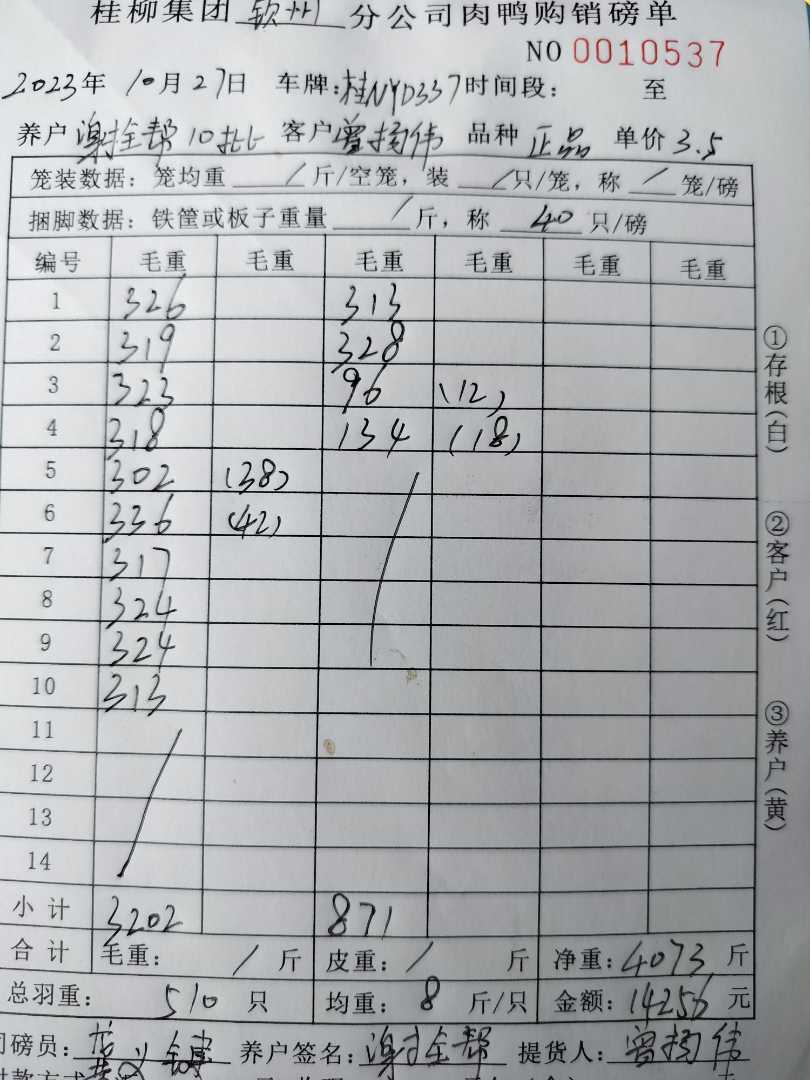 桂柳集团 钦州 分公司肉鸭购销磅单
NO 0010537
2023年 10月27日 车牌:桂NYD337 时间段: 至
养户 谢拴帮 10批 客户 曾扬伟 品种 正品 单价 3.5
笼装数据: 笼均重 / 斤/空笼, 装 / 只/笼, 称 / 笼/磅
捆脚数据: 铁筐或板子重量 / 斤, 称 40 只/磅
编号 毛重 毛重 毛重 毛重 毛重 毛重
1 326 313
2 319 328
3 323 96 (12)
4 318 134 (18)
5 302 (38)
6 336 (42)
7 317
8 324
9 324
10 313
11
12
13
14
小计 3202 871
合计 毛重: / 斤 皮重: / 斤 净重: 4073 斤
总羽重: 510 只 均重: 8 斤/只 金额: 14256 元
司磅员: 养户签名: 谢拴帮 提货人: 曾扬伟
①存根(白)
②客户(红)
③养户(黄)